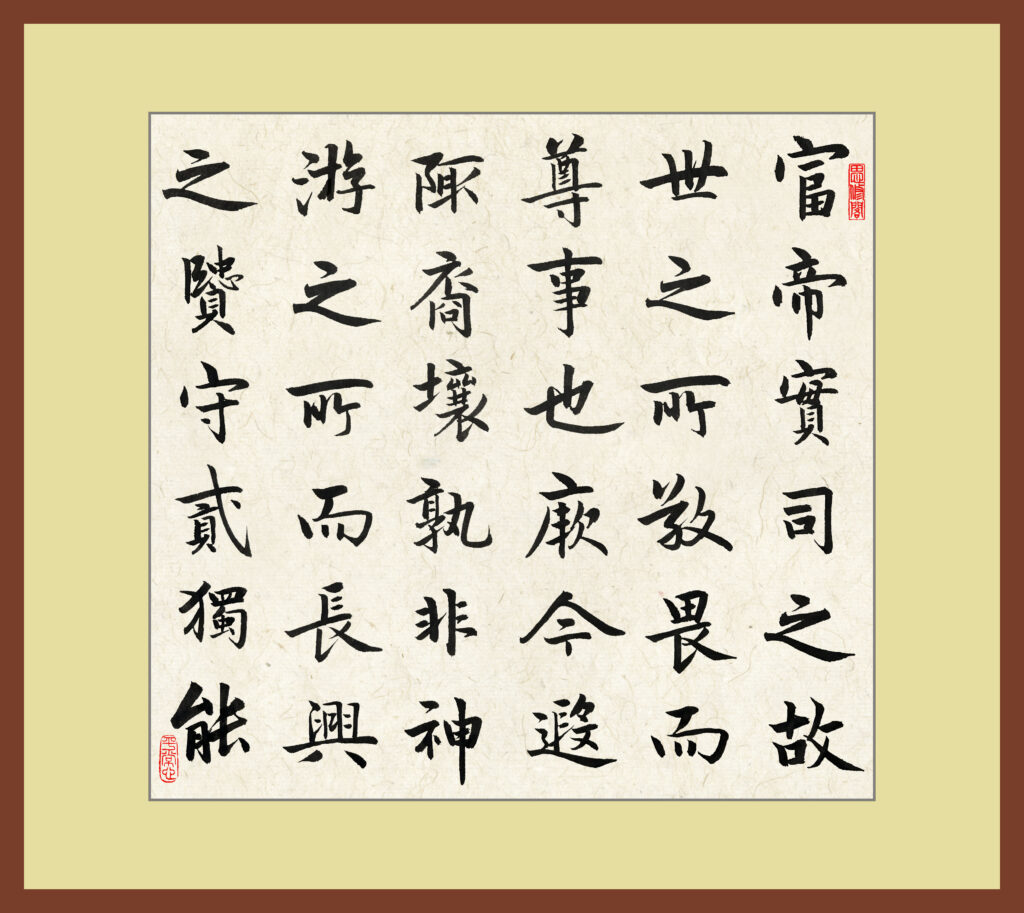 思修閣
富帝實司之故
世之所敬畏而
尊事也厥今遐
陬裔壤孰非神
游之所而長興
之贒守貳獨能
平常心